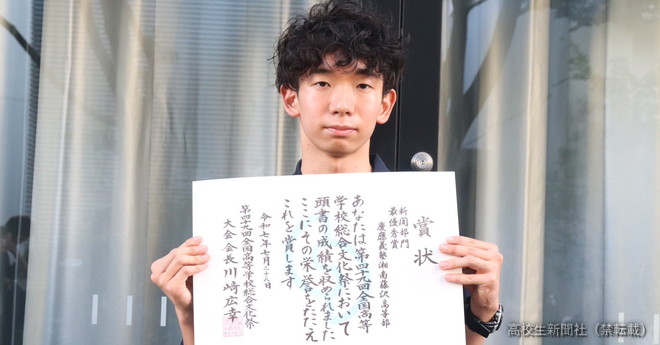 賞状
新聞部門
最優秀賞
慶應義塾湘南藤沢高等部
あなたは第四十九回全国高等
学校総合文化祭において
頭書の成績を収められました
ここにその栄誉をたたえ
これを賞します
令和七年七月二十八日
第四十九回全国高等学校総合文化祭
大会会長川崎広幸
高校生新聞社（禁転載）